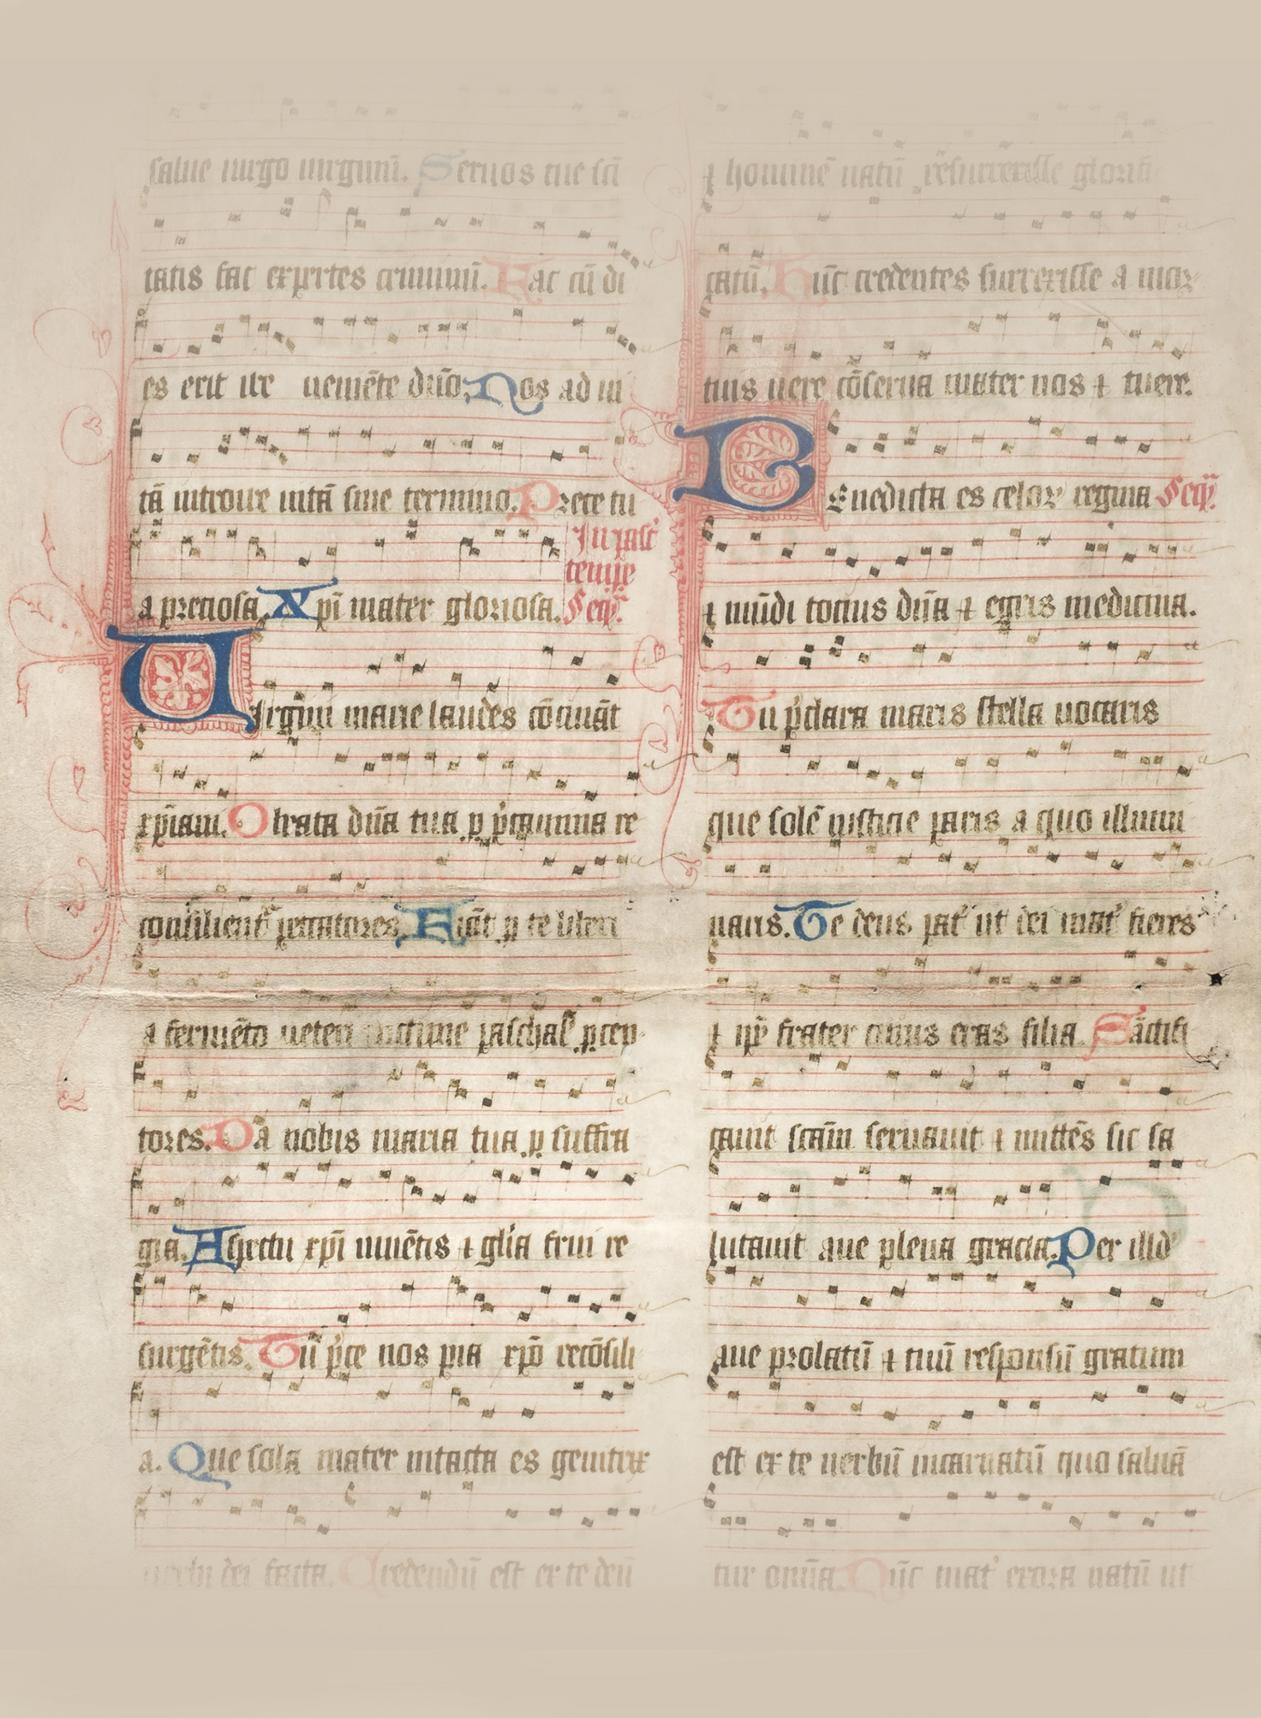 salue uirgo uirginū. Seruos tue scī
tatis fac expertes criminū. Fac cū di
es erit ire uemēte dn̄o. Nos ad ui
tā introire uitā sine termino. Prece tu
In pasc̄
tempe
a preciosa. Xpī mater gloriosa. Seq̄.
Uirgini marie laudes cōcināt
xp̄iani. O beata dn̄a tua p p̄camina re
concilient᷑ peccatores. Fiāt p te liberi
a fermēto ueteri uictime paschal᷑ p̄cep
tores. Da nobis maria tua p suffra
gia. Aspectu xpī uiuētis ⁊ gl̄ia frui re
surgētis. Tu p̄ce nos pia xp̄o recōsili
a. Que sola mater intacta es genitrix
uerbi dei facta. Credendū est ex te deū
⁊ hominē natū resurrexisse glorifi
catū. Hūc credentes surrexisse a mor
tuis uere cōserua mater nos ⁊ tuere.
Benedicta es celoꝝ regina Seq̄.
⁊ mūdi totius dn̄a ⁊ egris medicina.
Tu p̄clara maris stella uocaris
que solē iusticie paris a quo illumi
naris. Te deus pat᷑ ut dei mat᷑ fieres
⁊ ip̄e frater cuius eras filia Sāctifi
cauit scām seruauit ⁊ mittēs sic sa
lutauit aue plena gracia. Per illd᷑
aue prolatū ⁊ tuū responsū gratum
est ex te uerbū incarnatū quo saluā
tur omīa. Nūc mat᷑ exora natū ut